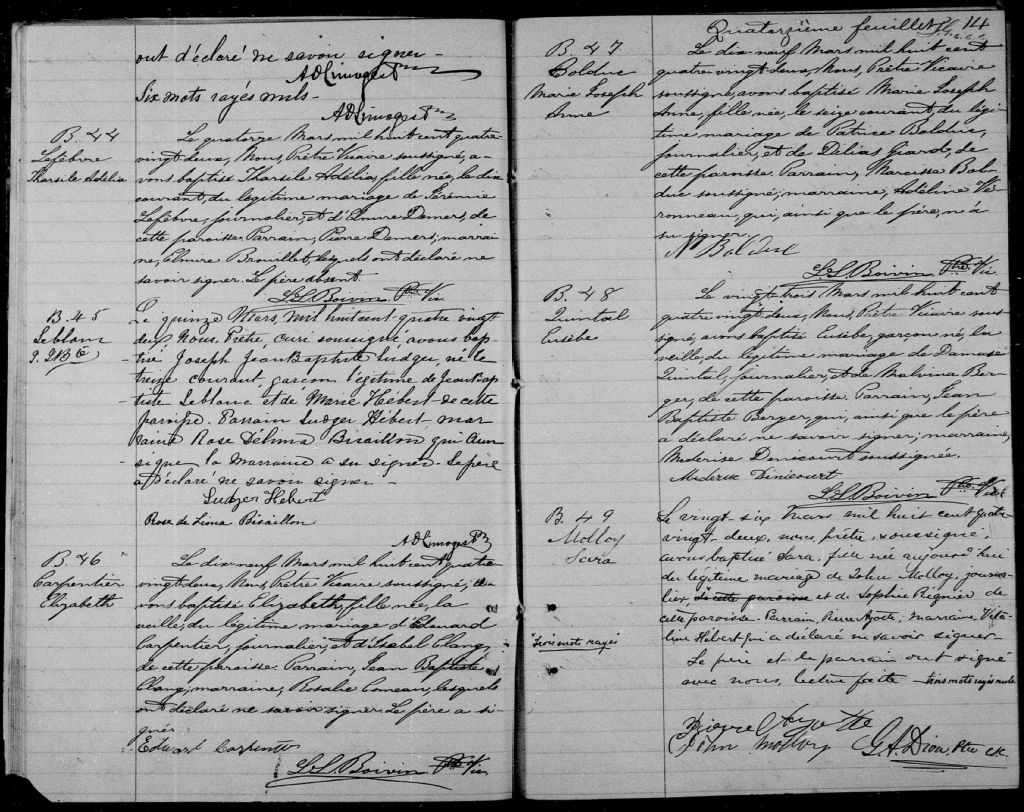 ont déclaré ne savoir signer -
A D Limoges Ptre
Six mots rayés nuls -
A D Limoges Ptre
B. 44
Lefebvre
Tharsile Adélia
Le quatorze Mars mil huit cent quatre
vingt deux, Nous, Prêtre Vicaire soussigné, a-
vons baptisé Tharsile Adélia, fille née, le dix
courant, du legitime mariage de Jérémie
Lefebvre, journalier, et d'Elmire Demers, de
cette paroisse. Parrain, Pierre Demers; marrai-
ne, Elmire Brouillet, lesquels ont déclaré ne
savoir signer. Le père absent.
Ls. L. Boivin Ptre Vic.
B. 45
Leblanc
Le quinze Mars, mil huit cent quatre vingt
deux Nous Prêtre, curé soussigné, avons bap-
tisé Joseph Jean Baptiste Ludger, né le
treize courant, garçon légitime de Jean Bap-
tiste Leblanc et de Marie Hébert de cette
paroisse. Parrain Ludger Hébert, mar-
raine Rose Délima Bisaillon qui ainsi
signe la Marraine a su signer - Le père
a déclaré ne savoir signer -
Ludger Hebert
Rose de Lima Bisaillon
A D Limoges Ptre
B. 46
Carpentier
Elizabeth
Le dix-neuf Mars mil huit cent quatre
vingt deux, Nous Prêtre Vicaire soussigné, a-
vons baptisé Elizabeth, fille, née, la
veille, du legitime mariage d'Edouard
Carpentier, journalier, et d'Isabel Clang,
de cette paroisse. Parrain, Jean Baptiste
Clang; marraine, Rosalie Comeau, lesquels
ont déclaré ne savoir signer. Le père a si-
gné
Edward Carpentier
Ls. L. Boivin Ptre Vic.
Quatorzième feuillet 14
B. 47
Bolduc
Marie Joseph
Anne
Le dix neuf Mars mil huit cent
quatre vingt deux, Nous, Prêtre Vicaire
soussigné, avons baptisé Marie Joseph
Anne, fille née, le seize courant, du légi-
time mariage de Patrice Bolduc,
journalier, et de Délias Giard, de
cette paroisse. Parrain, Narcisse Bol-
duc soussigné; marraine, Adéline Vé-
ronneau, qui, ainsi que le père, n'a
su signer.
N Bolduc
Ls. L. Boivin Ptre Vic.
B. 48
Quintal
Eusèbe
Le vingt trois Mars mil huit cent
quatre vingt deux, Nous, Prêtre Vicaire sous-
signé, avons baptisé Eusèbe, garçon né, la
veille, du legitime mariage de Damase
Quintal, journalier, et de Malvina Ber-
ger, de cette paroisse. Parrain, Jean
Baptiste Berger, qui, ainsi que le père
a déclaré ne savoir signer; marraine,
Mederise Denicourt soussignée.
Mederise Dinicourt
Ls. L. Boivin Ptre Vic.
B. 49
Molloy
Sara
Le vingt-six mars mil huit cent quatre
vingt-deux, nous, prêtre, soussigné,
avons baptisé Sara, fille née aujourd'hui
du légitime mariage de John Molloy, journa-
lier, de cette paroisse et de Sophie Regnier de
cette paroisse. Parrain, Pierre Ayotte, marraine, Vita-
line Hébert qui a déclaré ne savoir signer -
Trois mots rayés
Le père et le parrain ont signé
avec nous, lecture faite - trois mots rayés nuls
Pierre Ayotte
John Molloy G. A. Dion, Ptre